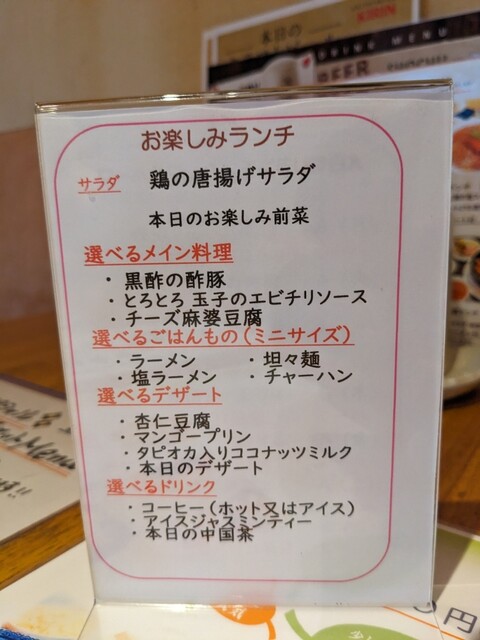 本日の
KIRIN
DRINK MENU
BEER
お楽しみランチ
サラダ 鶏の唐揚げサラダ
本日のお楽しみ前菜
選べるメイン料理
・黒酢の酢豚
・とろとろ 玉子のエビチリソース
・チーズ麻婆豆腐
選べるごはんもの(ミニサイズ)
・ラーメン ・坦々麺
・塩ラーメン ・チャーハン
選べるデザート
・杏仁豆腐
・マンゴープリン
・タピオカ入りココナッツミルク
・本日のデザート
選べるドリンク
・コーヒー(ホット又はアイス)
・アイスジャスミンティー
・本日の中国茶
円